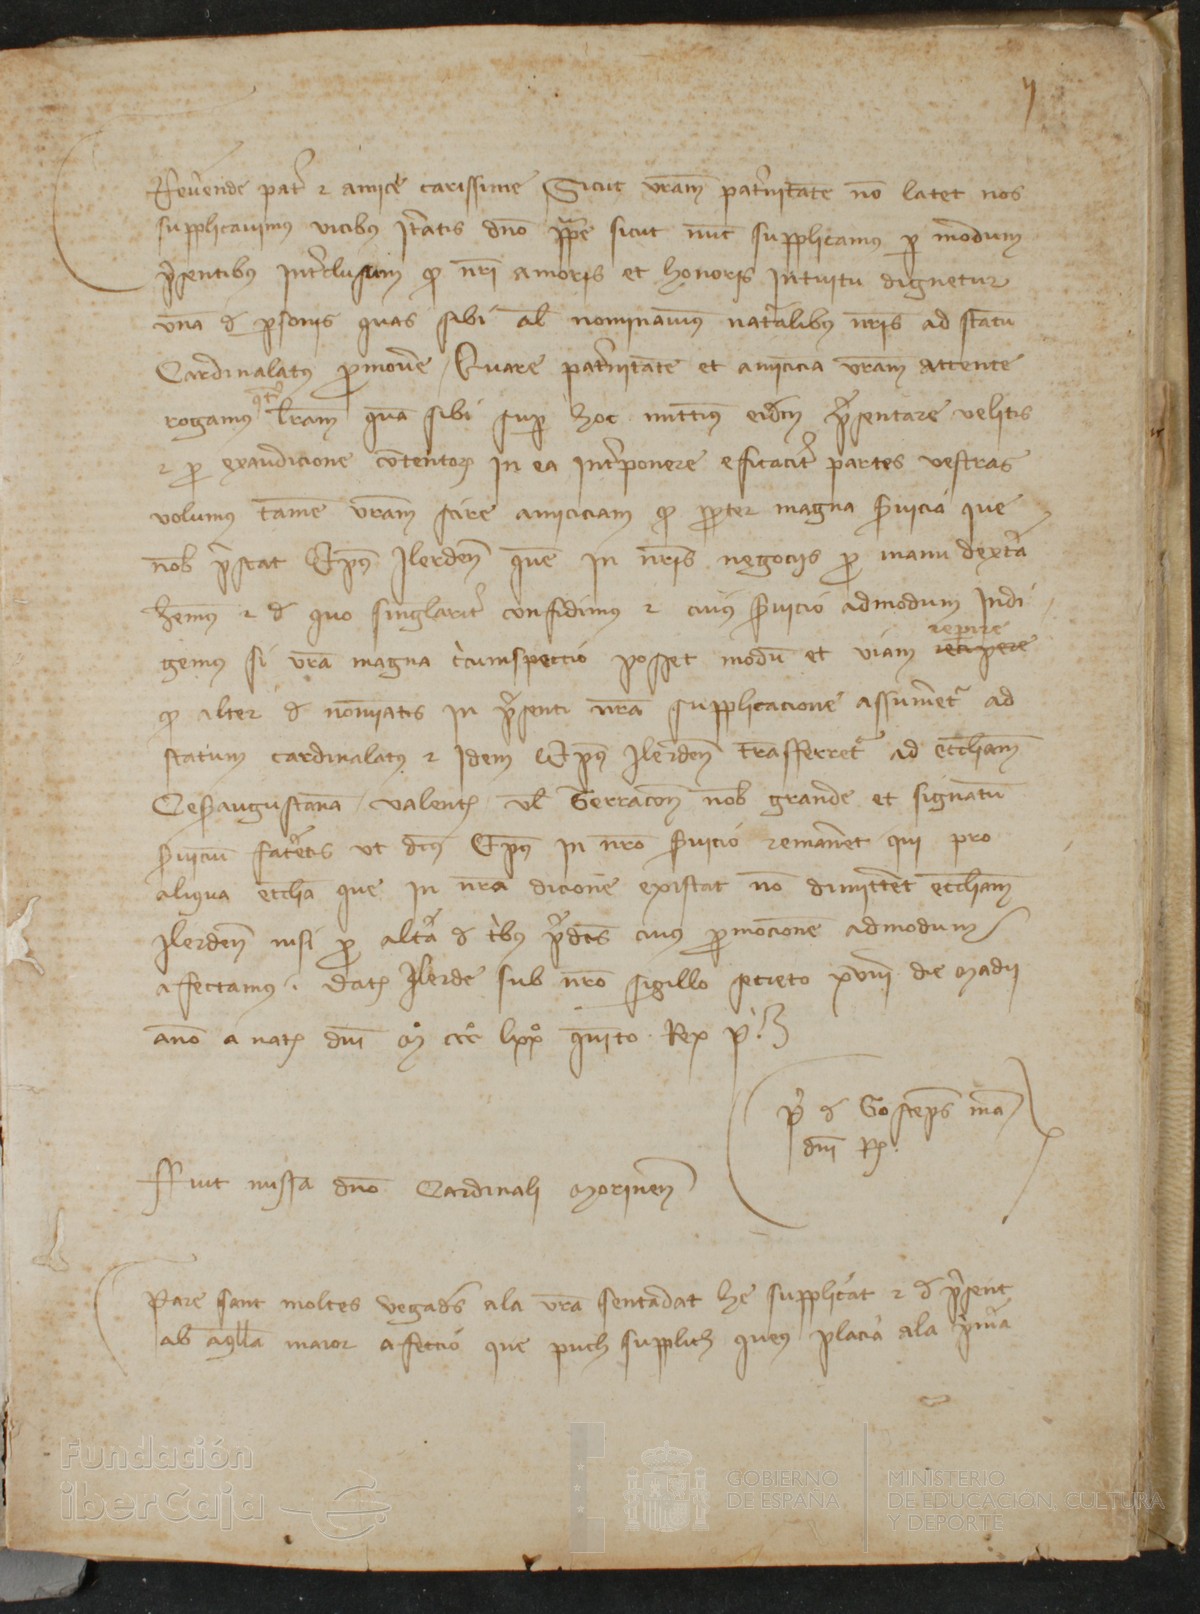 Reverende pater et amice carissime Sicut vram paternitatem non latet nos
supplicauimus vicibus iteratis dno pape sicut nunc supplicamus per modum
presentibus interclusum quod nri amoris et honoris intuitu dignetur
vna de personis quas sibi al nominauimus naturalibus nris ad statum
Cardinalatus promouere Quare paternitatem et amicicia vram attente
rogamus qtus lram quam sibi super hoc mittimus eidem presentare velitis
et pro exaudicione contentorum in ea interponere efficaciter partes vestras
volumus tamen vram scire amiciciam quod propter magna seruicia que
nobis prestat Epus Ilerden quem in nris negociis pro manu dextera
hemus et de quo singulariter confidimus et cuius seruicio admodum indi
gemus si vra magna circumspeccio posset modum et viam reperire
quod alter de nominatis in presenti nra supplicacione assumeretur ad
statum cardinalatus et idem Epus Ilerden transferretur ad eccliam
Cesaraugustanam valentin vel Terracon nobis grande et signatum
seruicium faceretis vt dcus Epus in nro seruicio remaneret qui pro
aliqua ecclia que in nra dicione existat non dimitteret eccliam
Ilerden nisi pro altera de tribus predictis cuius promocionem admodum
affectamus. Dat Ilerde sub nro sigillo secreto xviii die Madii
anno a nat dni Mo ccco lxxo quinto. Rex P.
P de Gostemps mand
dni R.
Fuit missa dno Cardinali Morinen
Pare sant moltes vegades a la vra sentedat he supplicat et de present
ab aquella maior affeccio que puch supplich queus placia a la primera
GOBIERNO
DE ESPAÑA
MINISTERIO
DE EDUCACIÓN, CULTURA
Y DEPORTE
Fundación
iberCaja